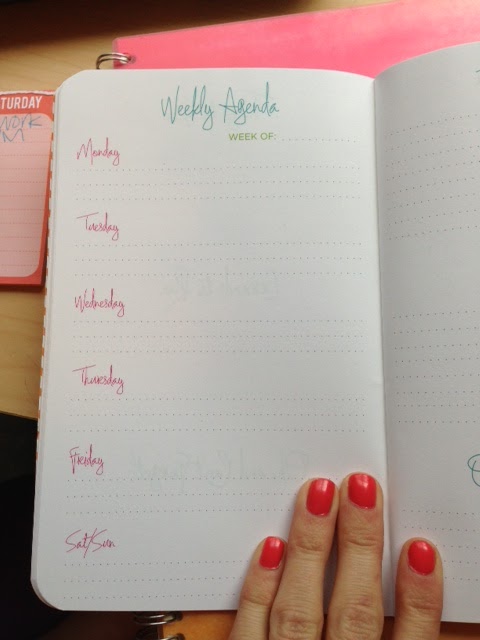 Weekly Agenda
WEEK OF:
Monday
Tuesday
Wednesday
Thursday
Friday
Sat/Sun
TURDAY
WORK